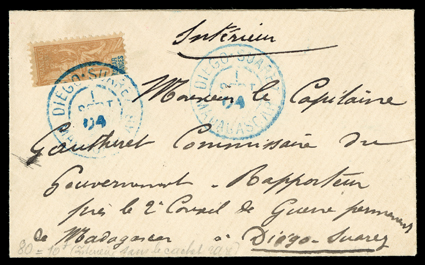 Intérieur
DIEGO-SUAREZ
1
04
MADAGASCAR
DIEGO-SUAREZ
1
04
MADAGASCAR
Monsieur le Capitaine
Gautheret Commissaire du
Gouvernement - Rapporteur
près le 2e Conseil de Guerre permanent
de Madagascar à Diégo-Suarez